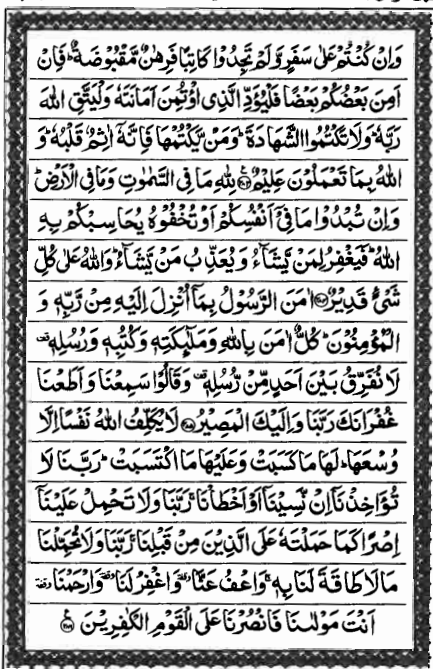 وَاِنْ كُنْتُمْ عَلٰى سَفَرٍ وَّلَمْ تَجِدُوْا كَاتِبًا فَرِهٰنٌ مَّقْبُوْضَةٌ ؕ فَاِنْ
اَمِنَ بَعْضُكُمْ بَعْضًا فَلْيُؤَدِّ الَّذِى اؤْتُمِنَ اَمَانَتَهٗ وَلْيَتَّقِ اللّٰهَ
رَبَّهٗ ؕ وَلَا تَكْتُمُوا الشَّهَادَةَ ؕ وَمَنْ يَّكْتُمْهَا فَاِنَّهٗۤ اٰثِمٌ قَلْبُهٗ ؕ وَ
اللّٰهُ بِمَا تَعْمَلُوْنَ عَلِيْمٌ ﴿۲۸۳﴾ لِلّٰهِ مَا فِى السَّمٰوٰتِ وَمَا فِى الْاَرْضِ ؕ
وَاِنْ تُبْدُوْا مَا فِيْۤ اَنْفُسِكُمْ اَوْ تُخْفُوْهُ يُحَاسِبْكُمْ بِهِ
اللّٰهُ ؕ فَيَغْفِرُ لِمَنْ يَّشَآءُ وَيُعَذِّبُ مَنْ يَّشَآءُ ؕ وَاللّٰهُ عَلٰى كُلِّ
شَىْءٍ قَدِيْرٌ ﴿۲۸۴﴾ اٰمَنَ الرَّسُوْلُ بِمَاۤ اُنْزِلَ اِلَيْهِ مِنْ رَّبِّهٖ وَ
الْمُؤْمِنُوْنَ ؕ كُلٌّ اٰمَنَ بِاللّٰهِ وَمَلٰٓئِكَتِهٖ وَكُتُبِهٖ وَرُسُلِهٖ ۟
لَا نُفَرِّقُ بَيْنَ اَحَدٍ مِّنْ رُّسُلِهٖ ۟ وَقَالُوْا سَمِعْنَا وَاَطَعْنَا
غُفْرَانَكَ رَبَّنَا وَاِلَيْكَ الْمَصِيْرُ ﴿۲۸۵﴾ لَا يُكَلِّفُ اللّٰهُ نَفْسًا اِلَّا
وُسْعَهَا ؕ لَهَا مَا كَسَبَتْ وَعَلَيْهَا مَا اكْتَسَبَتْ ؕ رَبَّنَا لَا
تُؤَاخِذْنَاۤ اِنْ نَّسِيْنَاۤ اَوْ اَخْطَاْنَا ۚ رَبَّنَا وَلَا تَحْمِلْ عَلَيْنَاۤ
اِصْرًا كَمَا حَمَلْتَهٗ عَلَى الَّذِيْنَ مِنْ قَبْلِنَا ۚ رَبَّنَا وَلَا تُحَمِّلْنَا
مَا لَا طَاقَةَ لَنَا بِهٖ ۚ وَاعْفُ عَنَّا ۟ وَاغْفِرْ لَنَا ۟ وَارْحَمْنَا ۟
اَنْتَ مَوْلٰىنَا فَانْصُرْنَا عَلَى الْقَوْمِ الْكٰفِرِيْنَ ﴿۲۸۶﴾